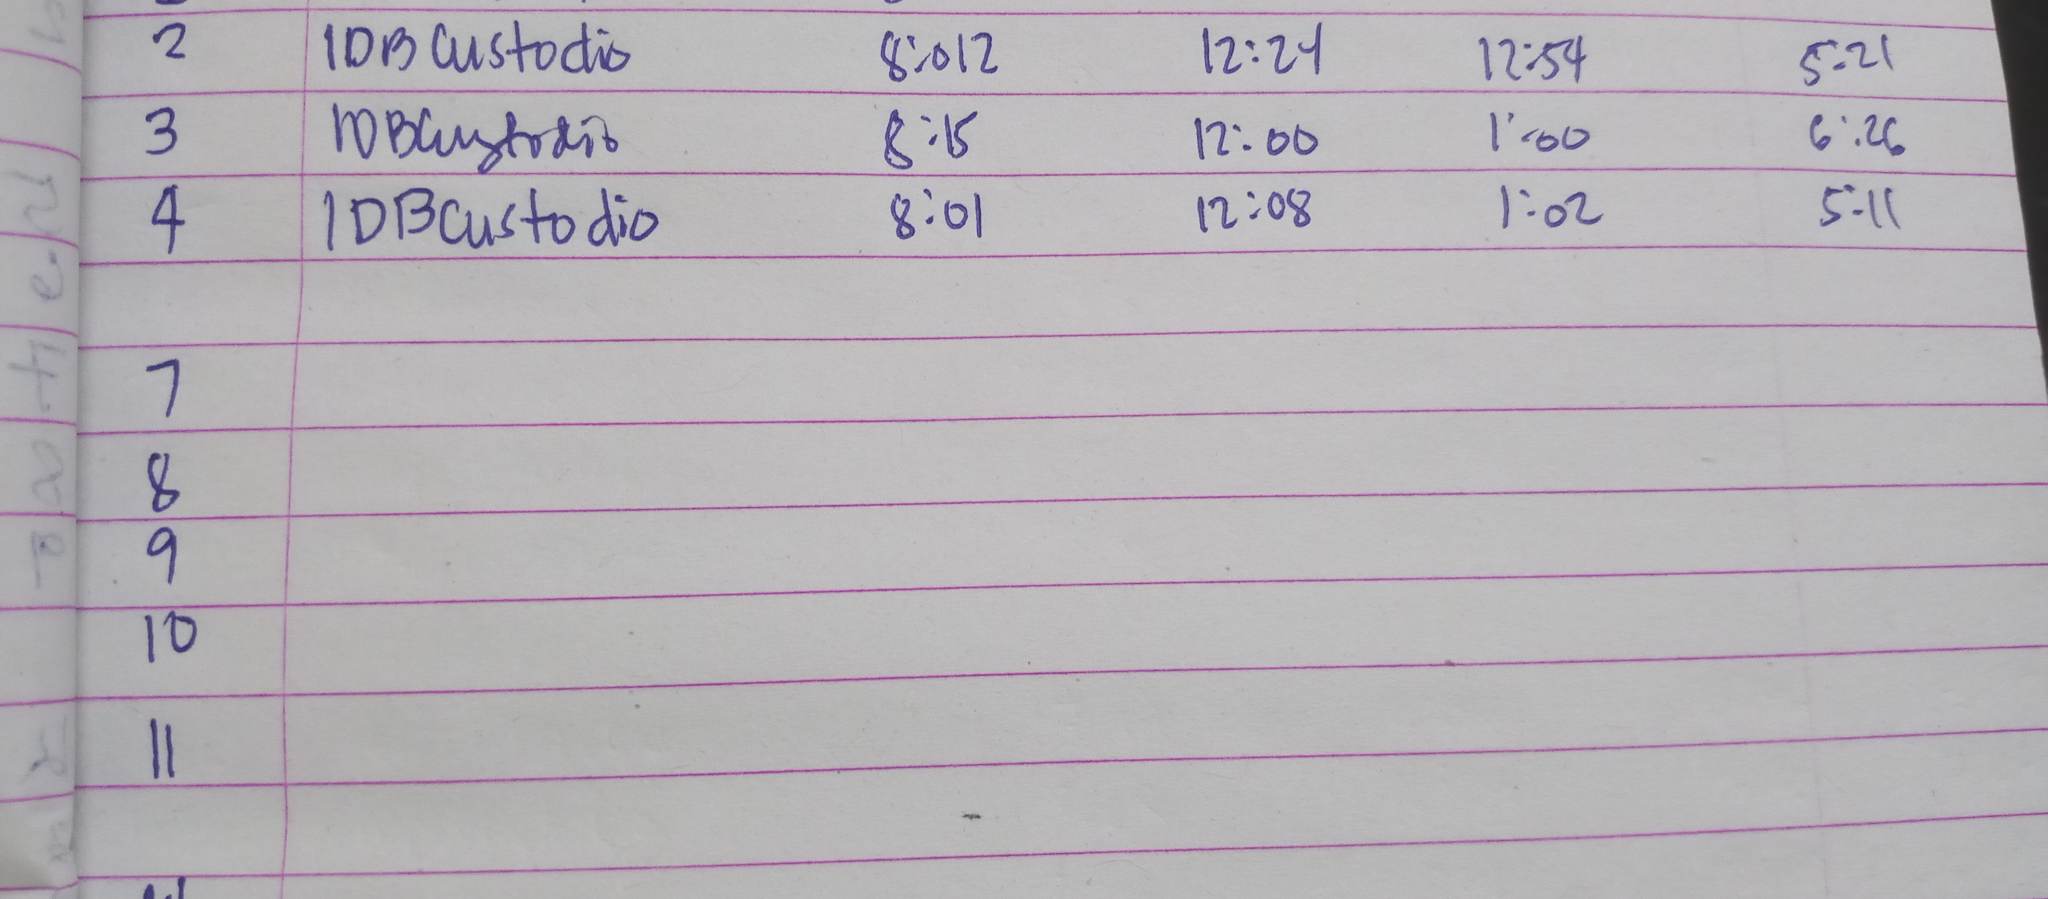 2 IDBCustodio 8:012 12:24 12:54 5:21
3 IDBCustodio 8:15 12:00 1:00 6:26
4 IDBCustodio 8:01 12:08 1:02 5:11
7
8
9
10
11